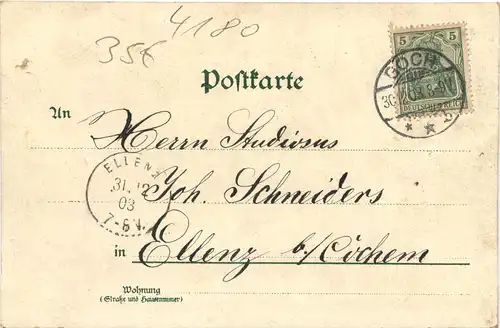 4180
35€
Postkarte
5
GOCH
DEUTSCHES REICH
An
Herrn Studiosus
ELLENZ
31.12
03
7-8V.
Joh. Schneiders
in
Ellenz b/Cochem
Wohnung
(Straße und Hausnummer)